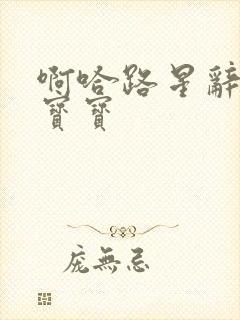 啊哈路星辭
寶寶
庞無忌